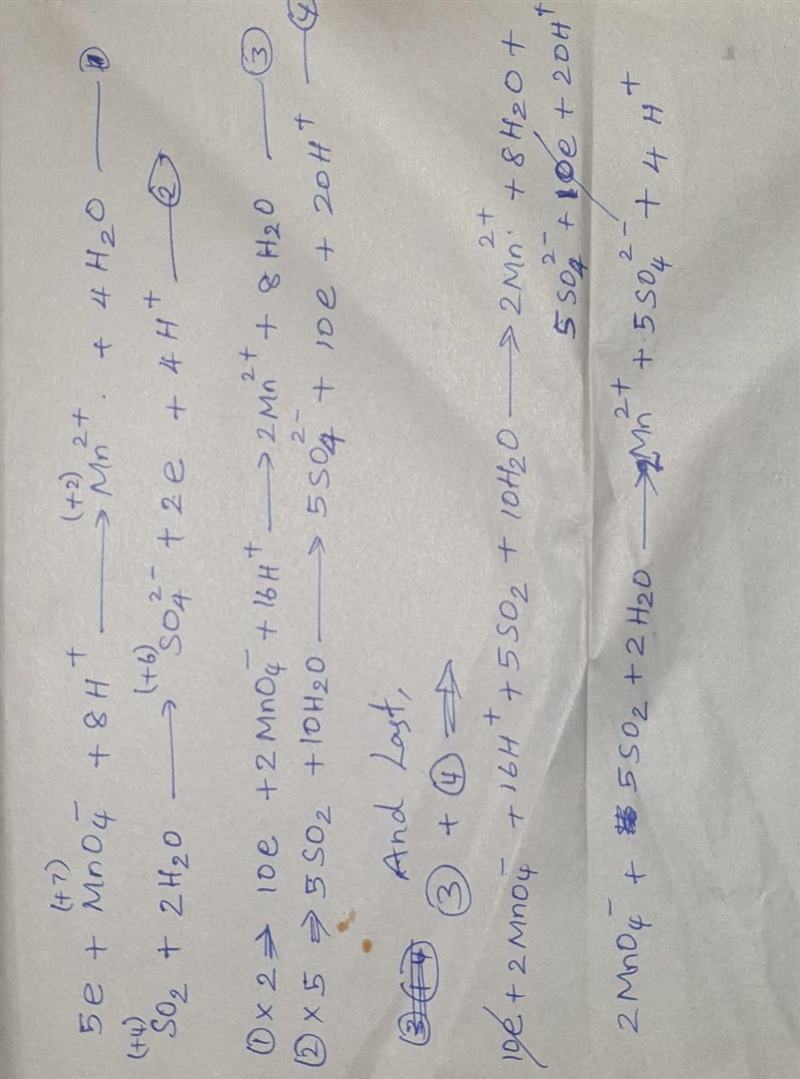 5e + MnO₄⁻ (+7) + 8H⁺ ⟶ Mn²⁺ (+2) + 4H₂O — ①
(+4) SO₂ + 2H₂O ⟶ (+6) SO₄²⁻ + 2e + 4H⁺ — ②
① × 2 ⇒ 10e + 2MnO₄⁻ + 16H⁺ ⟶ 2Mn²⁺ + 8H₂O — ③
② × 5 ⇒ 5SO₂ + 10H₂O ⟶ 5SO₄²⁻ + 10e + 20H⁺ — ④
And Last,
③ + ④ ⇒
10e + 2MnO₄⁻ + 16H⁺ + 5SO₂ + 10H₂O ⟶ 2Mn²⁺ + 8H₂O +
5SO₄²⁻ + 10e + 20H⁺
2MnO₄⁻ + 5SO₂ + 2H₂O ⟶ 2Mn²⁺ + 5SO₄²⁻ + 4H⁺